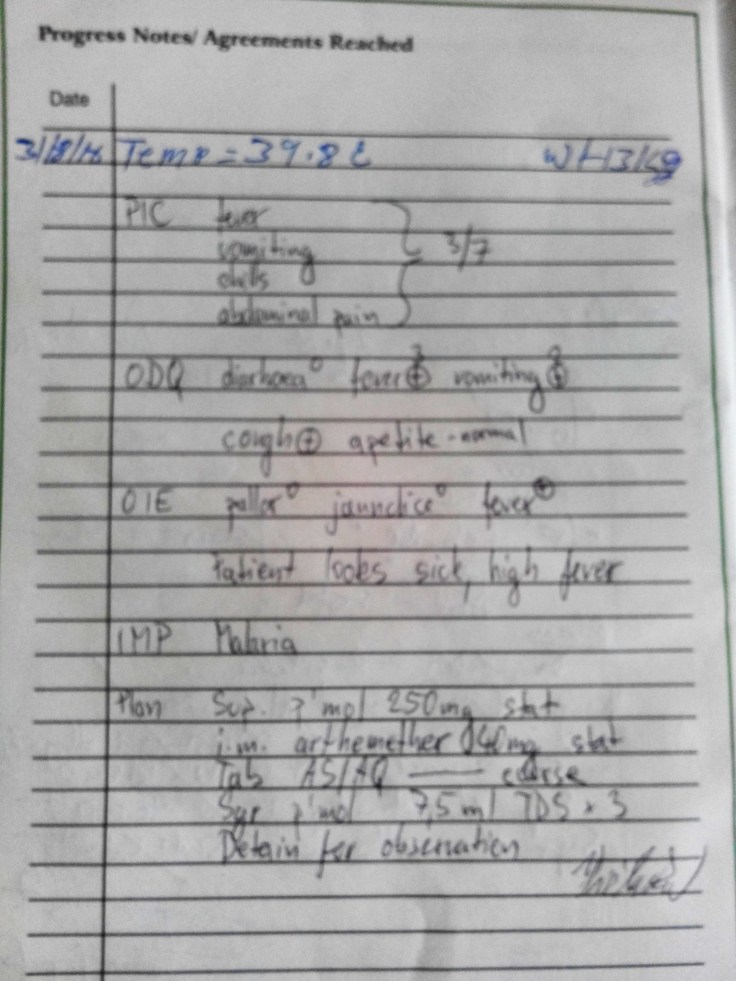 Progress Notes/ Agreements Reached
Date
Temp = 39.8 C Wt-13 kg
PIC fever
vomiting 3/7
chills
abdominal pain
ODQ diarhoea° fever⊕ vomiting⊕
cough⊕ apetite - normal
OIE pallor° jaundice° fever⊕
Patient looks sick, high fever
IMP Malaria
Plan Sup. p'mol 250mg stat
i.m. arthemether 40mg stat
Tab AS/AQ — course
Syr p'mol 7,5 ml TDS x 3
Detain for observation